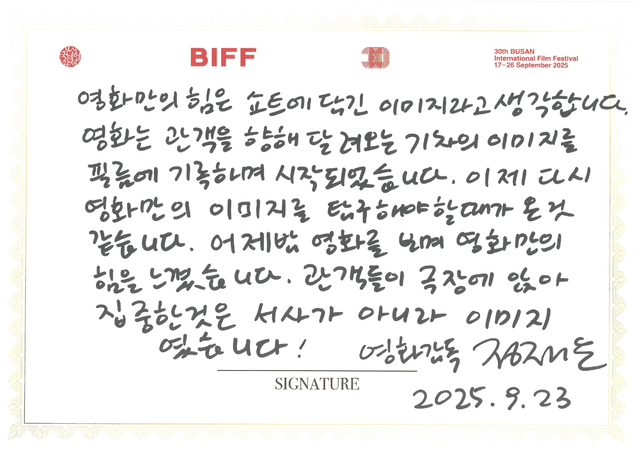 BIFF
30
30th BUSAN
International Film Festival
17-26 September 2025
영화만의 힘은 쇼트에 담긴 이미지라고 생각합니다.
영화는 관객을 향해 달려오는 기차의 이미지를
필름에 기록하며 시작되었습니다. 이제 다시
영화만의 이미지를 탐구해야할때가 온것
같습니다. 어제밤 영화를 보며 영화만의
힘을 느꼈습니다. 관객들이 극장에 앉아
집중한것은 서사가 아니라 이미지
였습니다! 영화감독
SIGNATURE
2025.9.23